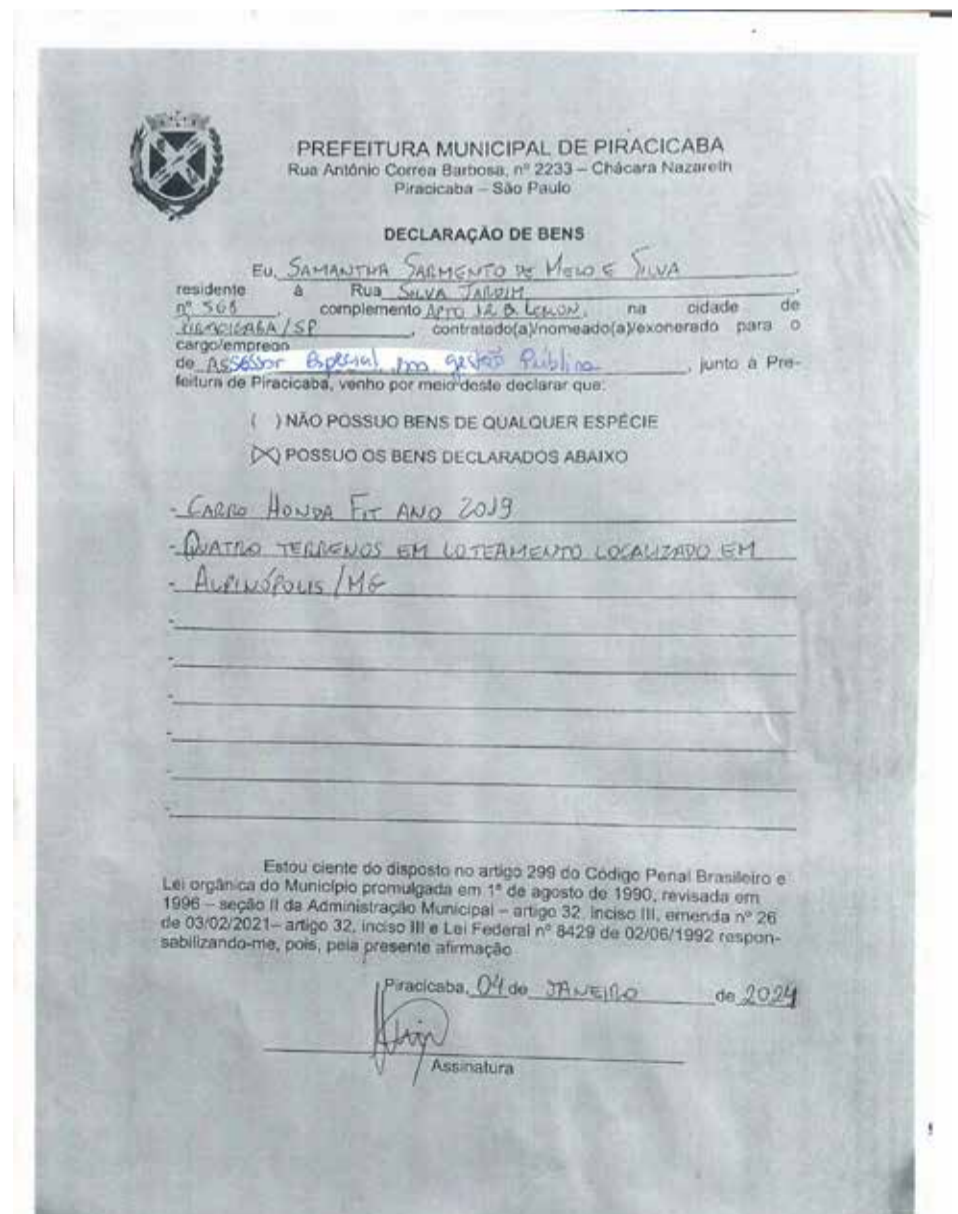 PREFEITURA MUNICIPAL DE PIRACICABA
Rua Antônio Correa Barbosa, nº 2233 – Chácara Nazareth
Piracicaba – São Paulo
DECLARAÇÃO DE BENS
Eu, SAMANTHA SARMENTO DE MELO E SILVA,
residente à Rua SILVA JARDIM,
nº 568, complemento APTO 12 B. LEBLON, na cidade de
PIRACICABA/SP, contratado(a)/nomeado(a)/exonerado para o
cargo/empreon
de Assessor Especial na gestão Pública, junto à Pre-
feitura de Piracicaba, venho por meio deste declarar que:
( ) NÃO POSSUO BENS DE QUALQUER ESPÉCIE
(X) POSSUO OS BENS DECLARADOS ABAIXO
- CARRO HONDA FIT ANO 2019
- QUATRO TERRENOS EM LOTEAMENTO LOCALIZADO EM
- ALPINÓPOLIS/MG
-
-
-
-
-
-
Estou ciente do disposto no artigo 299 do Código Penal Brasileiro e
Lei orgânica do Município promulgada em 1º de agosto de 1990, revisada em
1996 – seção II da Administração Municipal – artigo 32, inciso III, emenda nº 26
de 03/02/2021– artigo 32, inciso III e Lei Federal nº 8429 de 02/06/1992 respon-
sabilizando-me, pois, pela presente afirmação
Piracicaba, 04 de JANEIRO de 2024
Assinatura